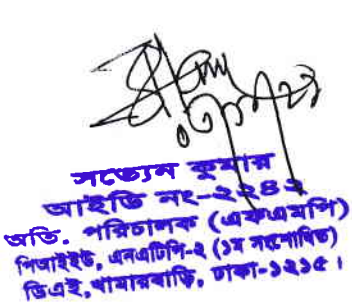 সত্যেন কুমার
আইডি নং-২২৪২
অতি. পরিচালক (এফএমপি)
পিআইইউ, এনএটিপি-২ (১ম সংশোধিত)
ডিএই, খামারবাড়ি, ঢাকা-১২১৫।